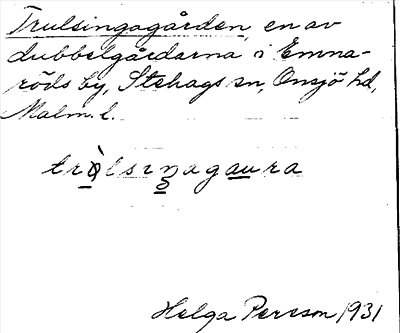 Trulsingagården, en av
dubbelgårdarna i Emna-
röds by, Stehags sn, Onsjö hd,
Malm. l.
Helga Persson 1931